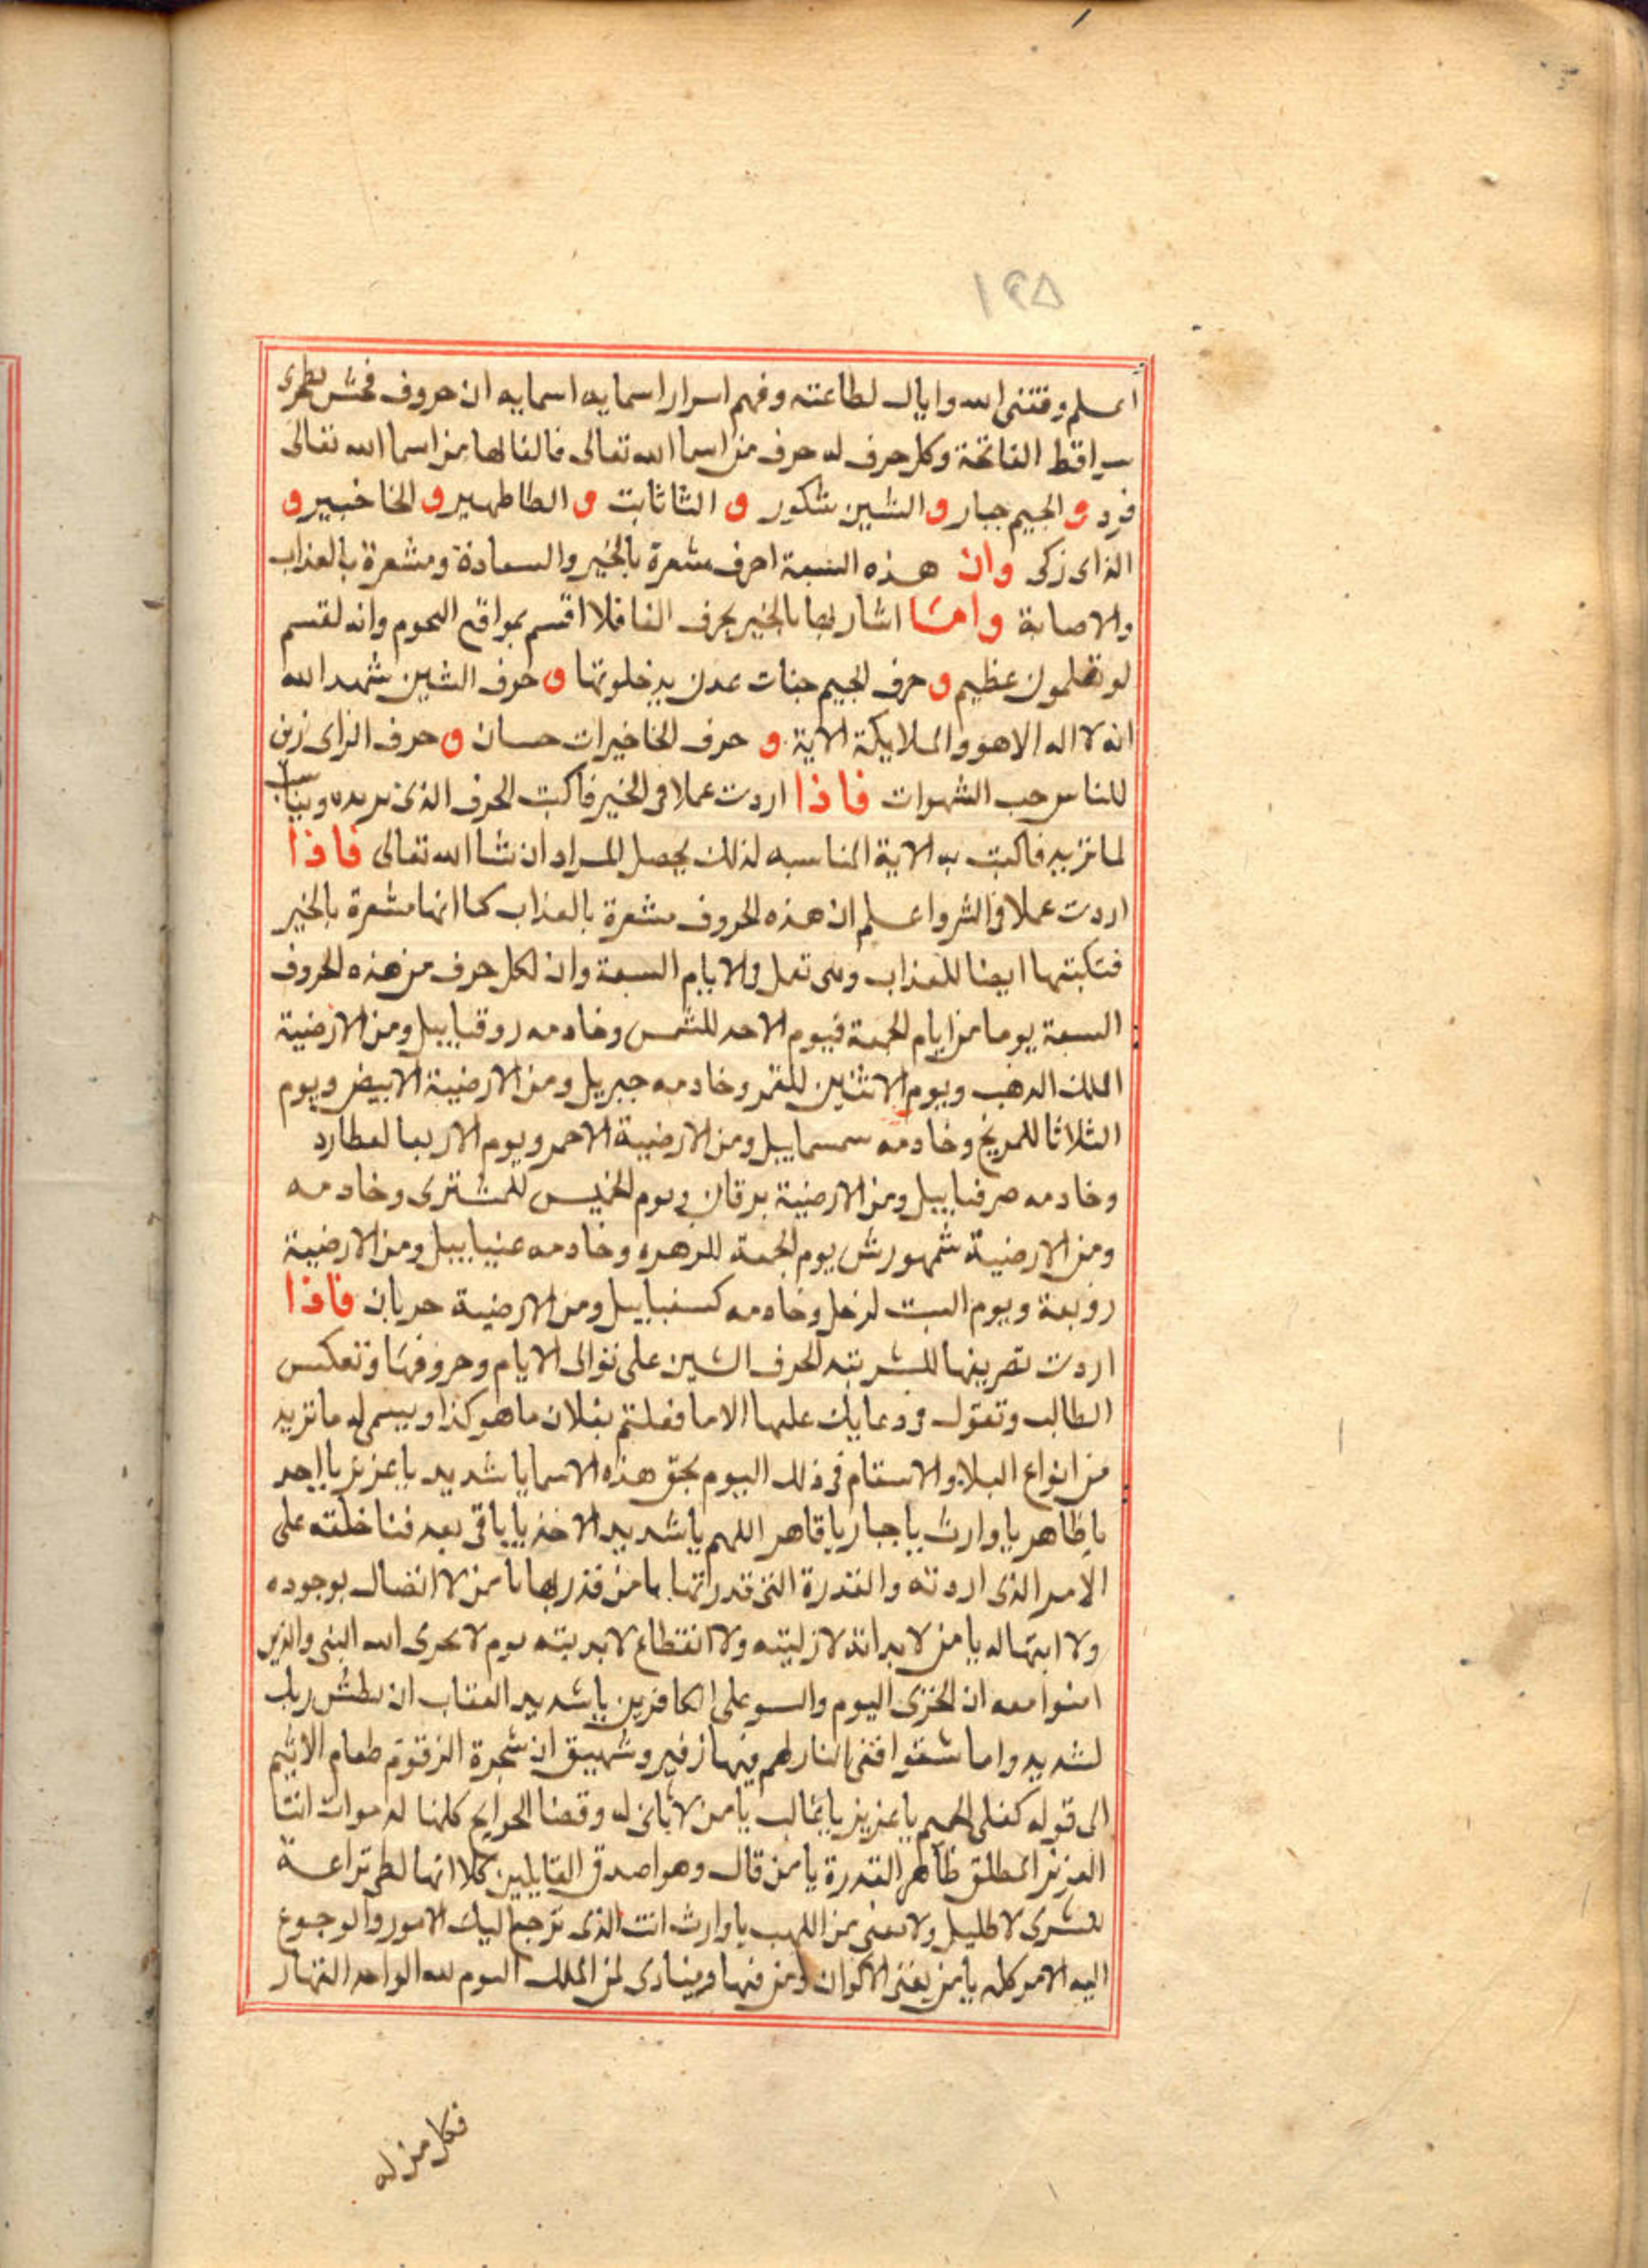 ١٢٥
اعلم وفقنى الله واياك لطاعته وفهم اسرار اسمايه اسمايه ان حروف
سواقط الفاتحة وكل حرف له حرف من اسما الله تعالى فالفا لها من اسما الله تعالى
فرد و الجيم جبار و الشين شكور و الثا ثابت و الظا ظهير و الخا خبير و
الزاى زكى وان هذه السبعة احرف مشعرة بالخير والسعادة ومشعرة بالعذاب
والاصابة واما اشارتها بالخير بحرف الفا فلا اقسم بمواقع النجوم وانه لقسم
لو تعلمون عظيم و حرف الجيم جنات عدن يدخلونها و حرف الشين شهد الله
انه لا اله الا هو والملايكة الاية و حرف الخا خيرات حسان و حرف الزاى زين
للناس حب الشهوات فاذا اردت عملا فى الخير فاكتب الحرف الذى تريده ويناسب
لما تريد فاكتب به الاية المناسبه لذلك يحصل المراد ان شا الله تعالى فاذا
اردت عملا فى الشر واعلم ان هذه الحروف مشعرة بالعذاب كما انها مشعرة بالخير
فتكتبها ايضا للعذاب وهى تعمل فى الايام السبعة وان لكل حرف من هذه الحروف
السبعة يوما من ايام الجمعة فيوم الاحد للشمس وخادمه روقياييل ومن الارضية
الملك الدهب ويوم الاثنين للقمر وخادمه جبريل ومن الارضية الابيض ويوم
الثلاثا للمريخ وخادمه سمسماييل ومن الارضية الاحمر ويوم الاربعا لعطارد
وخادمه صرفياييل ومن الارضية برقان ويوم الخميس للمشترى وخادمه
ومن الارضية شمهورش يوم الجمعة للزهره وخادمه عنياييل ومن الارضية
زوبعة ويوم السبت لزحل وخادمه كسفياييل ومن الارضية فاذا
اردت تصريفها للشر تبه لحرف الشين على توالى الايام وحروفها وتعكس
الطالب وتقول فى دعايك عليها الا ما فعلتم بفلان ما هو كذا ويسمى له ما تريد
من انواع البلا والاسقام فى ذلك اليوم بحق هذه الاسما يا شديد يا عزيز يا احد
يا ظاهر يا وارث يا جبار يا قاهر اللهم يا شديد الاخذ يا باقى بعد فنا خلقه على
الامر الذى اردته والقدرة التى قدرتها يا من قدر بها يا من لا انفصال بوجوده
ولا انتها له يا من لا بداية لازليته ولا انقطاع لابديته يوم لا يخزى الله النبى والذين
امنوا معه ان الخزى اليوم والسو على الكافرين يا شديد العقاب ان بطش ربك
لشديد واما شقوا ففى النار لهم فيها زفير وشهيق ان شجرة الزقوم طعام الاثيم
الى قوله كغلى الحميم يا عزيز يا غالب يا من لا ثانى له وقضا الحوايج كلها له انت
العزيز المطلق ظاهر القدرة يا من قال وهو اصدق القايلين كلا انها لظى نزاعة
للشوى لا ظليل ولا يغنى من اللهب يا وارث انت الذى ترجع اليك الامور والرجوع
اليه الامر كله يا من يفنى الاكوان ومن فيها وينادى لمن الملك اليوم لله الواحد القهار
فكل من له